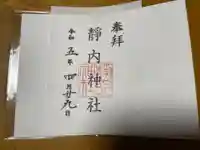 奉拝
靜内神社
令和五年四月廿九日